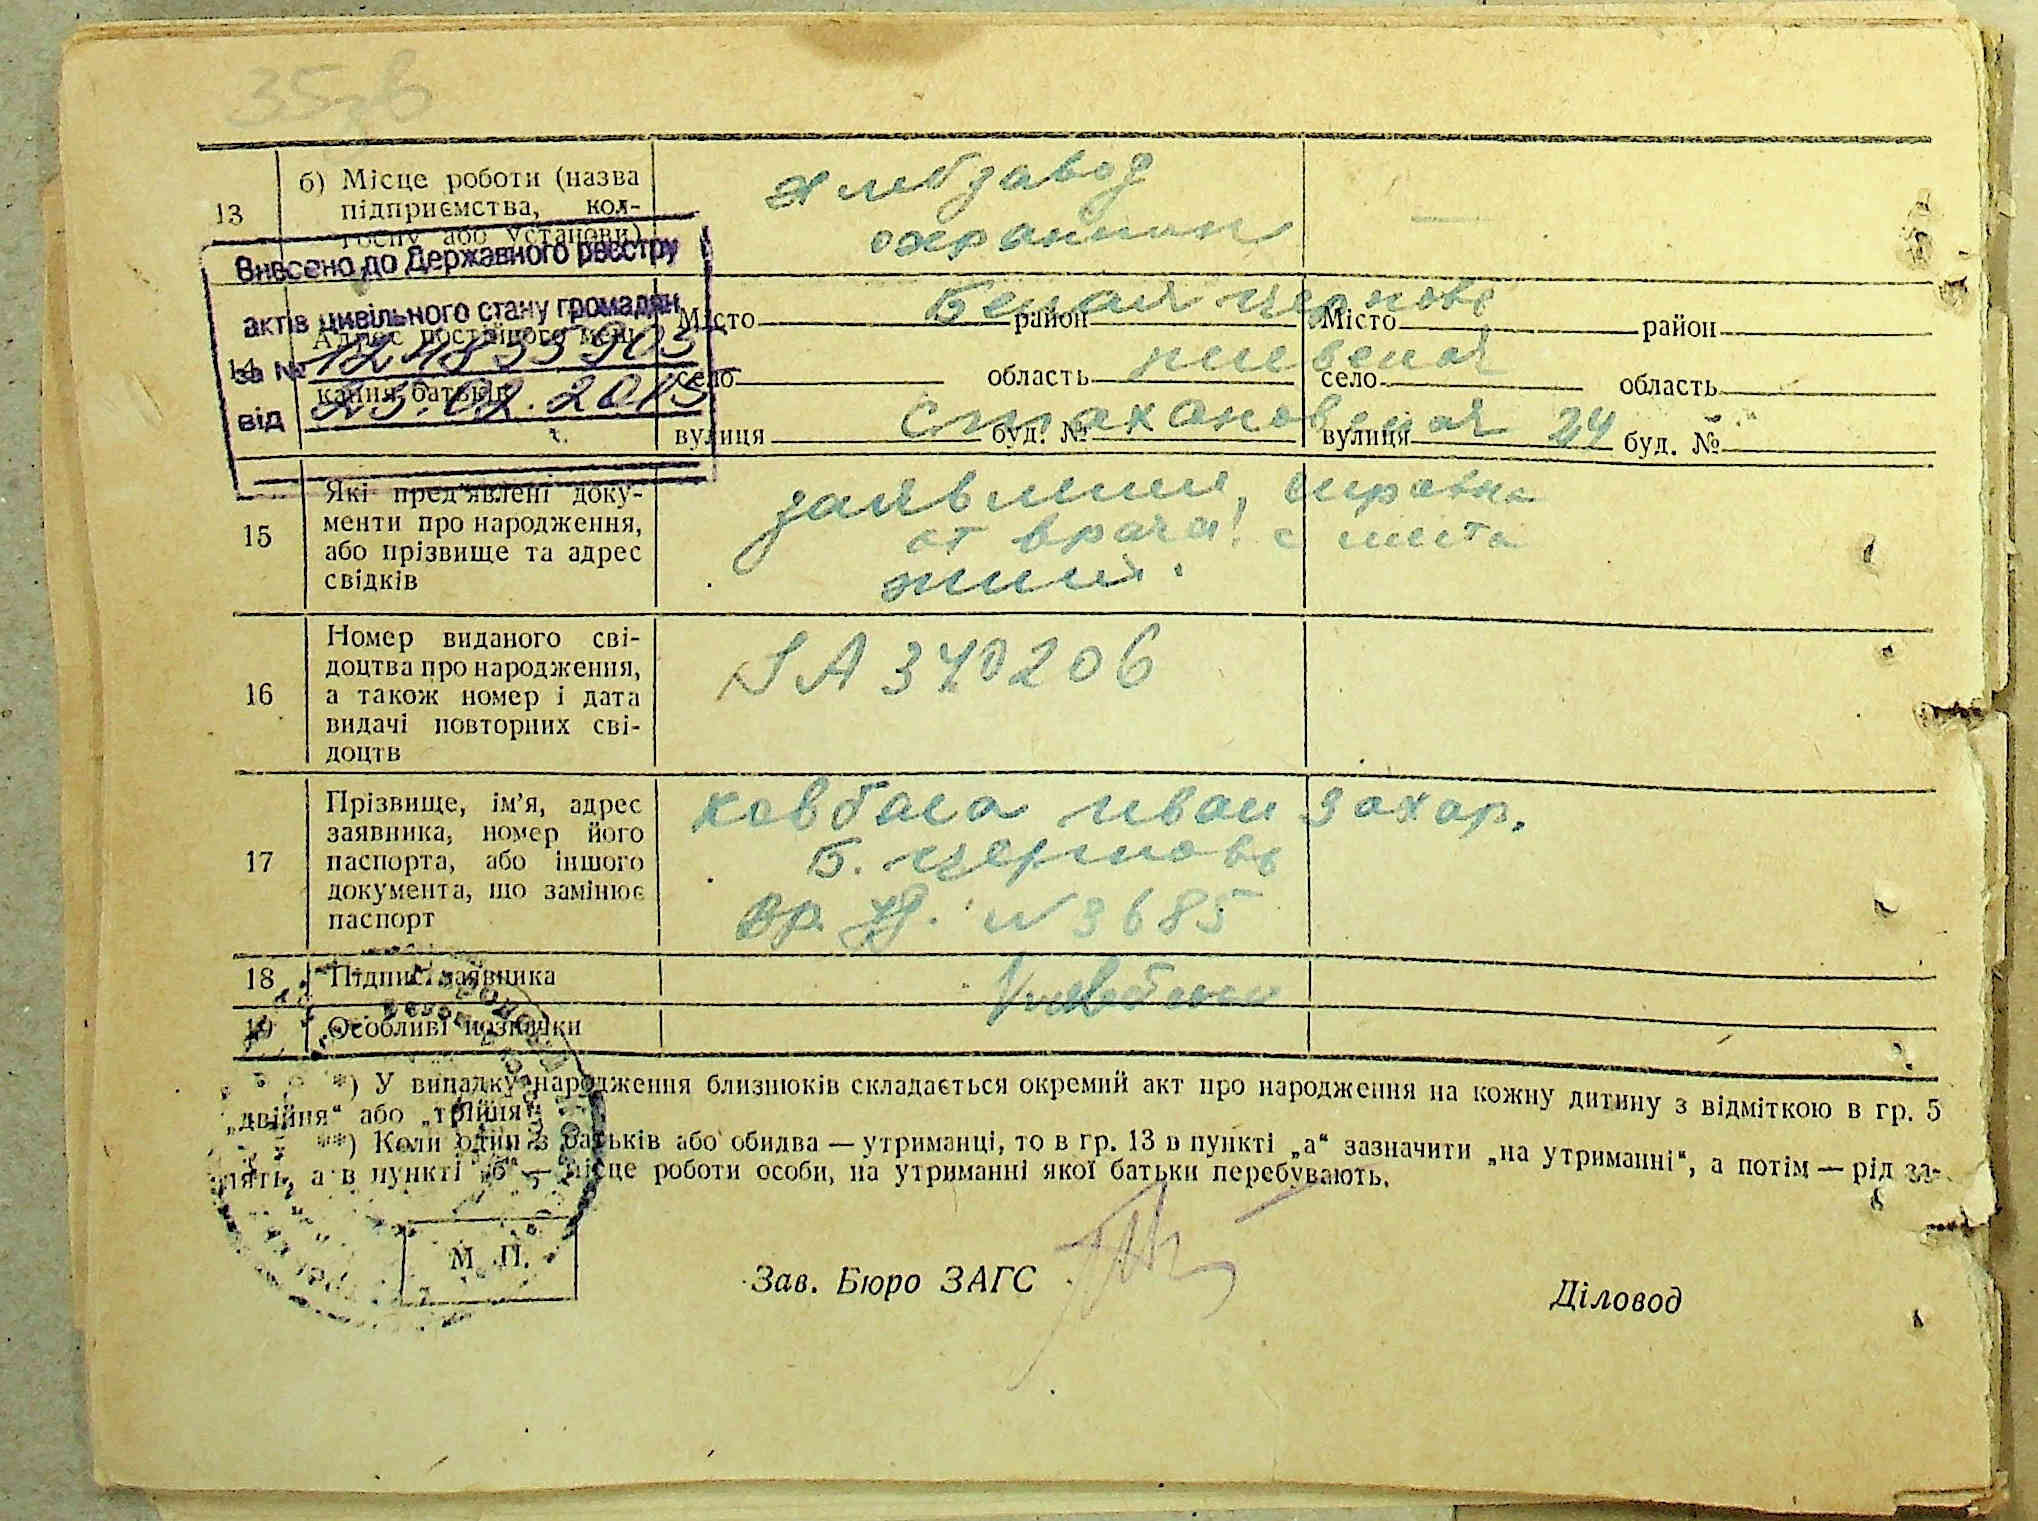 13
б) Місце роботи (назва
підприємства, кол-
госпу або установи)
хлебзавод
охранник
—
Внесено до Державного реєстру
актів цивільного стану громадян
за №
від
14
Адрес постійного меш-
кання батьків
Белая церковь
Місто район Місто район
киевская
село область село область
Стахановская 24
вулиця буд. № вулиця буд. №
15
Які пред'явлені доку-
менти про народження,
або прізвище та адрес
свідків
заявление, справка
от врача с места
жит.
16
Номер виданого сві-
доцтва про народження,
а також номер і дата
видачі повторних сві-
доцтв
340206
17
Прізвище, ім'я, адрес
заявника, номер його
паспорта, або іншого
документа, що замінює
паспорт
Ковбаса Иван Захар.
Б. церковь
вр. уд. № 3685
18
Підпис заявника
19
Особливі позначки
*) У випадку народження близнюків складається окремий акт про народження на кожну дитину з відміткою в гр. 5
„двійня“ або „трійня“.
**) Коли один з батьків або обидва — утриманці, то в гр. 13 в пункті „а“ зазначити „на утриманні“, а потім — рід за-
нять, а в пункті „б“ — місце роботи особи, на утриманні якої батьки перебувають.
М. П.
Зав. Бюро ЗАГС
Діловод